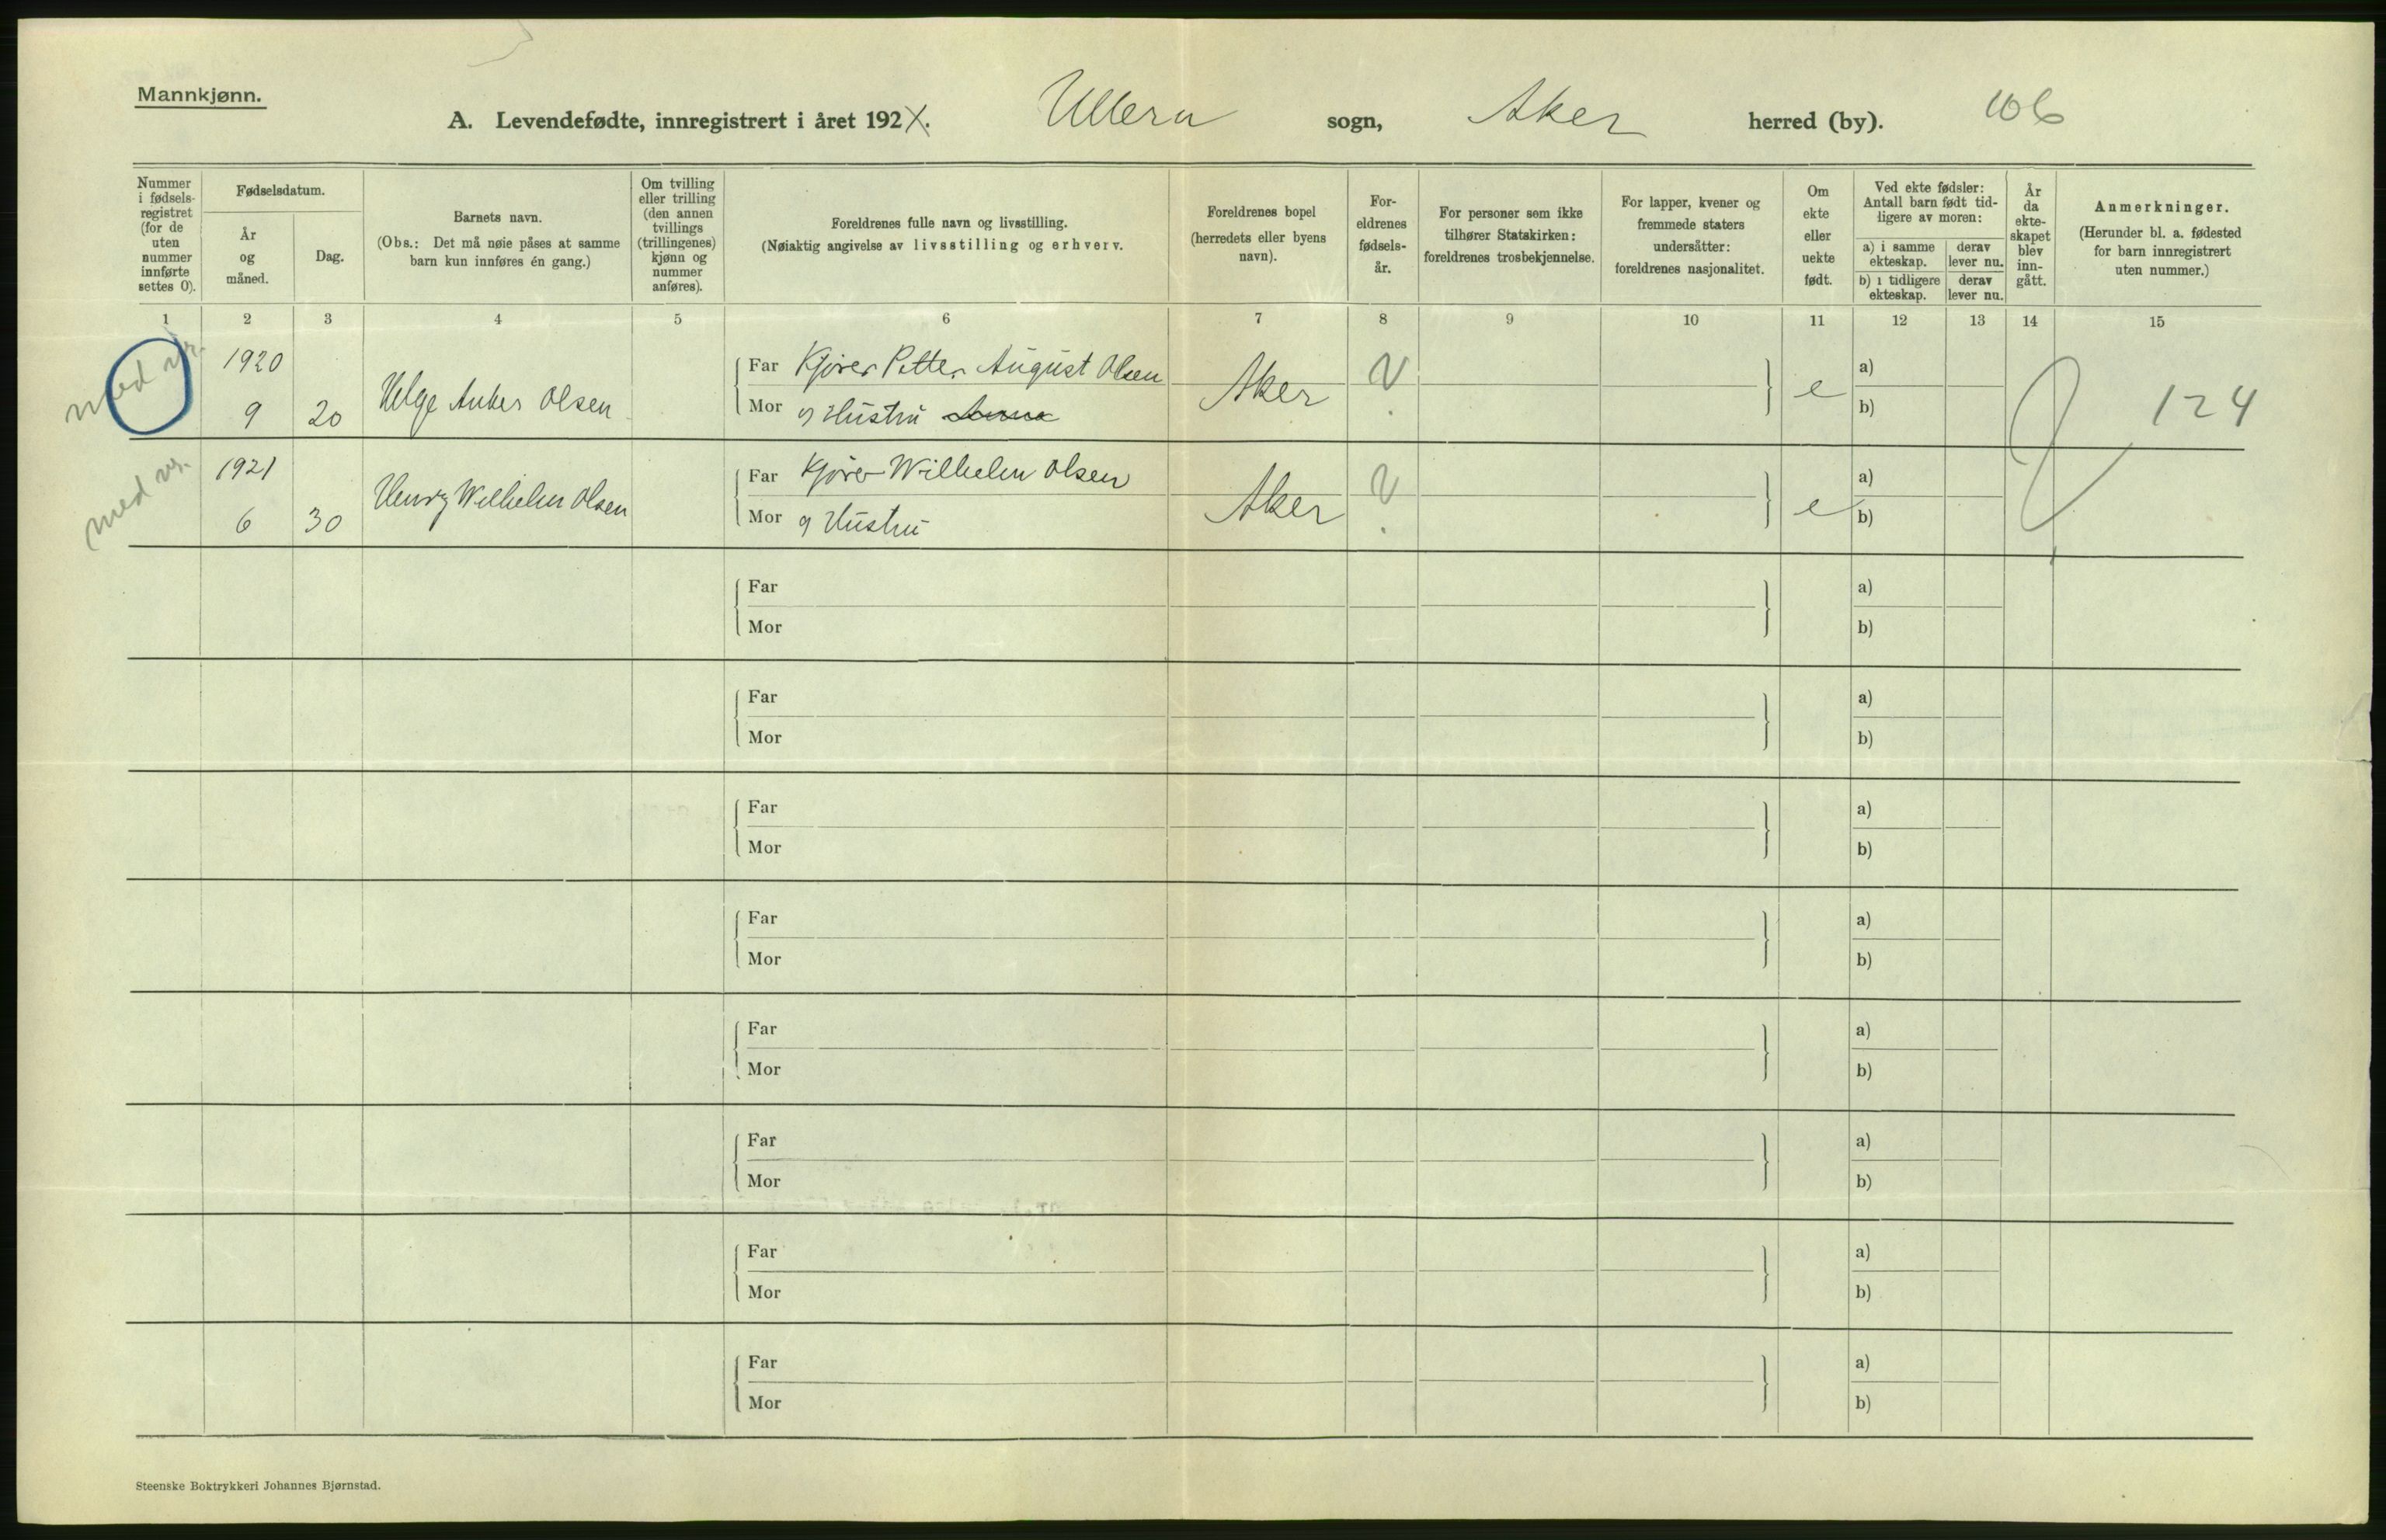 Mannkjønn.
A. Levendefødte, innregistrert i året 192X. Ullern sogn, Aker herred (by). 106
Nummer i fødsels-registret (for de uten nummer innførte settes 0).
Fødselsdatum.
År og måned.
Dag.
Barnets navn.
(Obs.: Det må nøie påses at samme barn kun innføres én gang.)
Om tvilling eller trilling (den annen tvillings (trillingenes) kjønn og nummer anføres).
Foreldrenes fulle navn og livsstilling.
(Nøiaktig angivelse av livsstilling og erhverv.
Foreldrenes bopel (herredets eller byens navn).
For-eldrenes fødsels-år.
For personer som ikke tilhører Statskirken: foreldrenes trosbekjennelse.
For lapper, kvener og fremmede staters undersåtter: foreldrenes nasjonalitet.
Om ekte eller uekte født.
Ved ekte fødsler: Antall barn født tid-ligere av moren:
a) i samme ekteskap.
derav lever nu.
b) i tidligere ekteskap.
derav lever nu.
År da ekte-skapet blev inn-gått.
Anmerkninger.
(Herunder bl. a. fødested for barn innregistrert uten nummer.)
1 2 3 4 5 6 7 8 9 10 11 12 13 14 15
med nr.
1920
9 20 Helge Anker Olsen
Far Kjører Petter August Olsen
Mor og Hustru Anna
Aker
e
a)
b)
124
med nr.
1921
6 30 Henry Wilhelm Olsen
Far Kjører Wilhelm Olsen
Mor og Hustru
Aker
e
a)
b)
Far a)
Mor b)
Far a)
Mor b)
Far a)
Mor b)
Far a)
Mor b)
Far a)
Mor b)
Far a)
Mor b)
Far a)
Mor b)
Far a)
Mor b)
Steenske Boktrykkeri Johannes Bjørnstad.